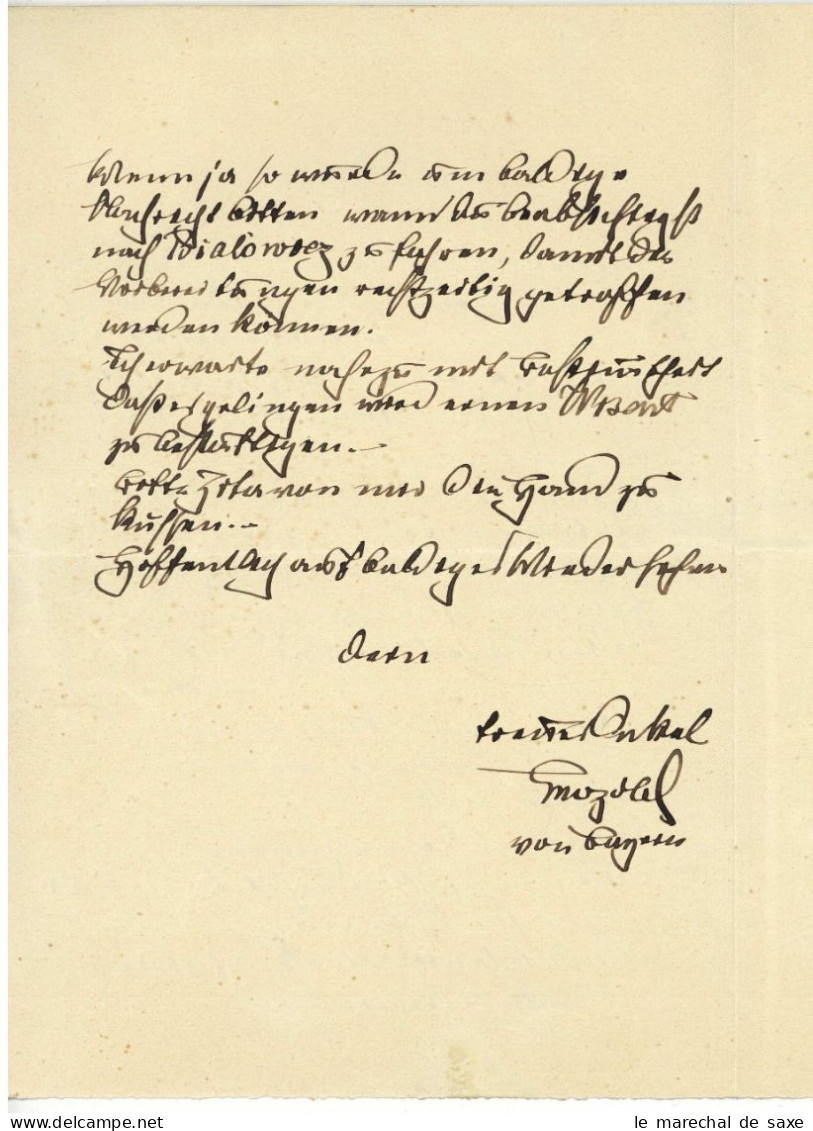 Wenn ja so würde um baldige
Nachricht bitten wann du beabsichtigst
nach Bialowicz zu fahren, damit die
Vorbereitungen rechtzeitig getroffen
werden können.
Ich erwarte nahezu mit Bestimmtheit
daß es gelingen wird einen Wisent
zu bestätigen.-
Bitte Zita von mir die Hand zu
küssen.-
Hoffentlich auf baldiges Wiedersehen
Dein
treuer Onkel
von Bayern
le marechal de saxe